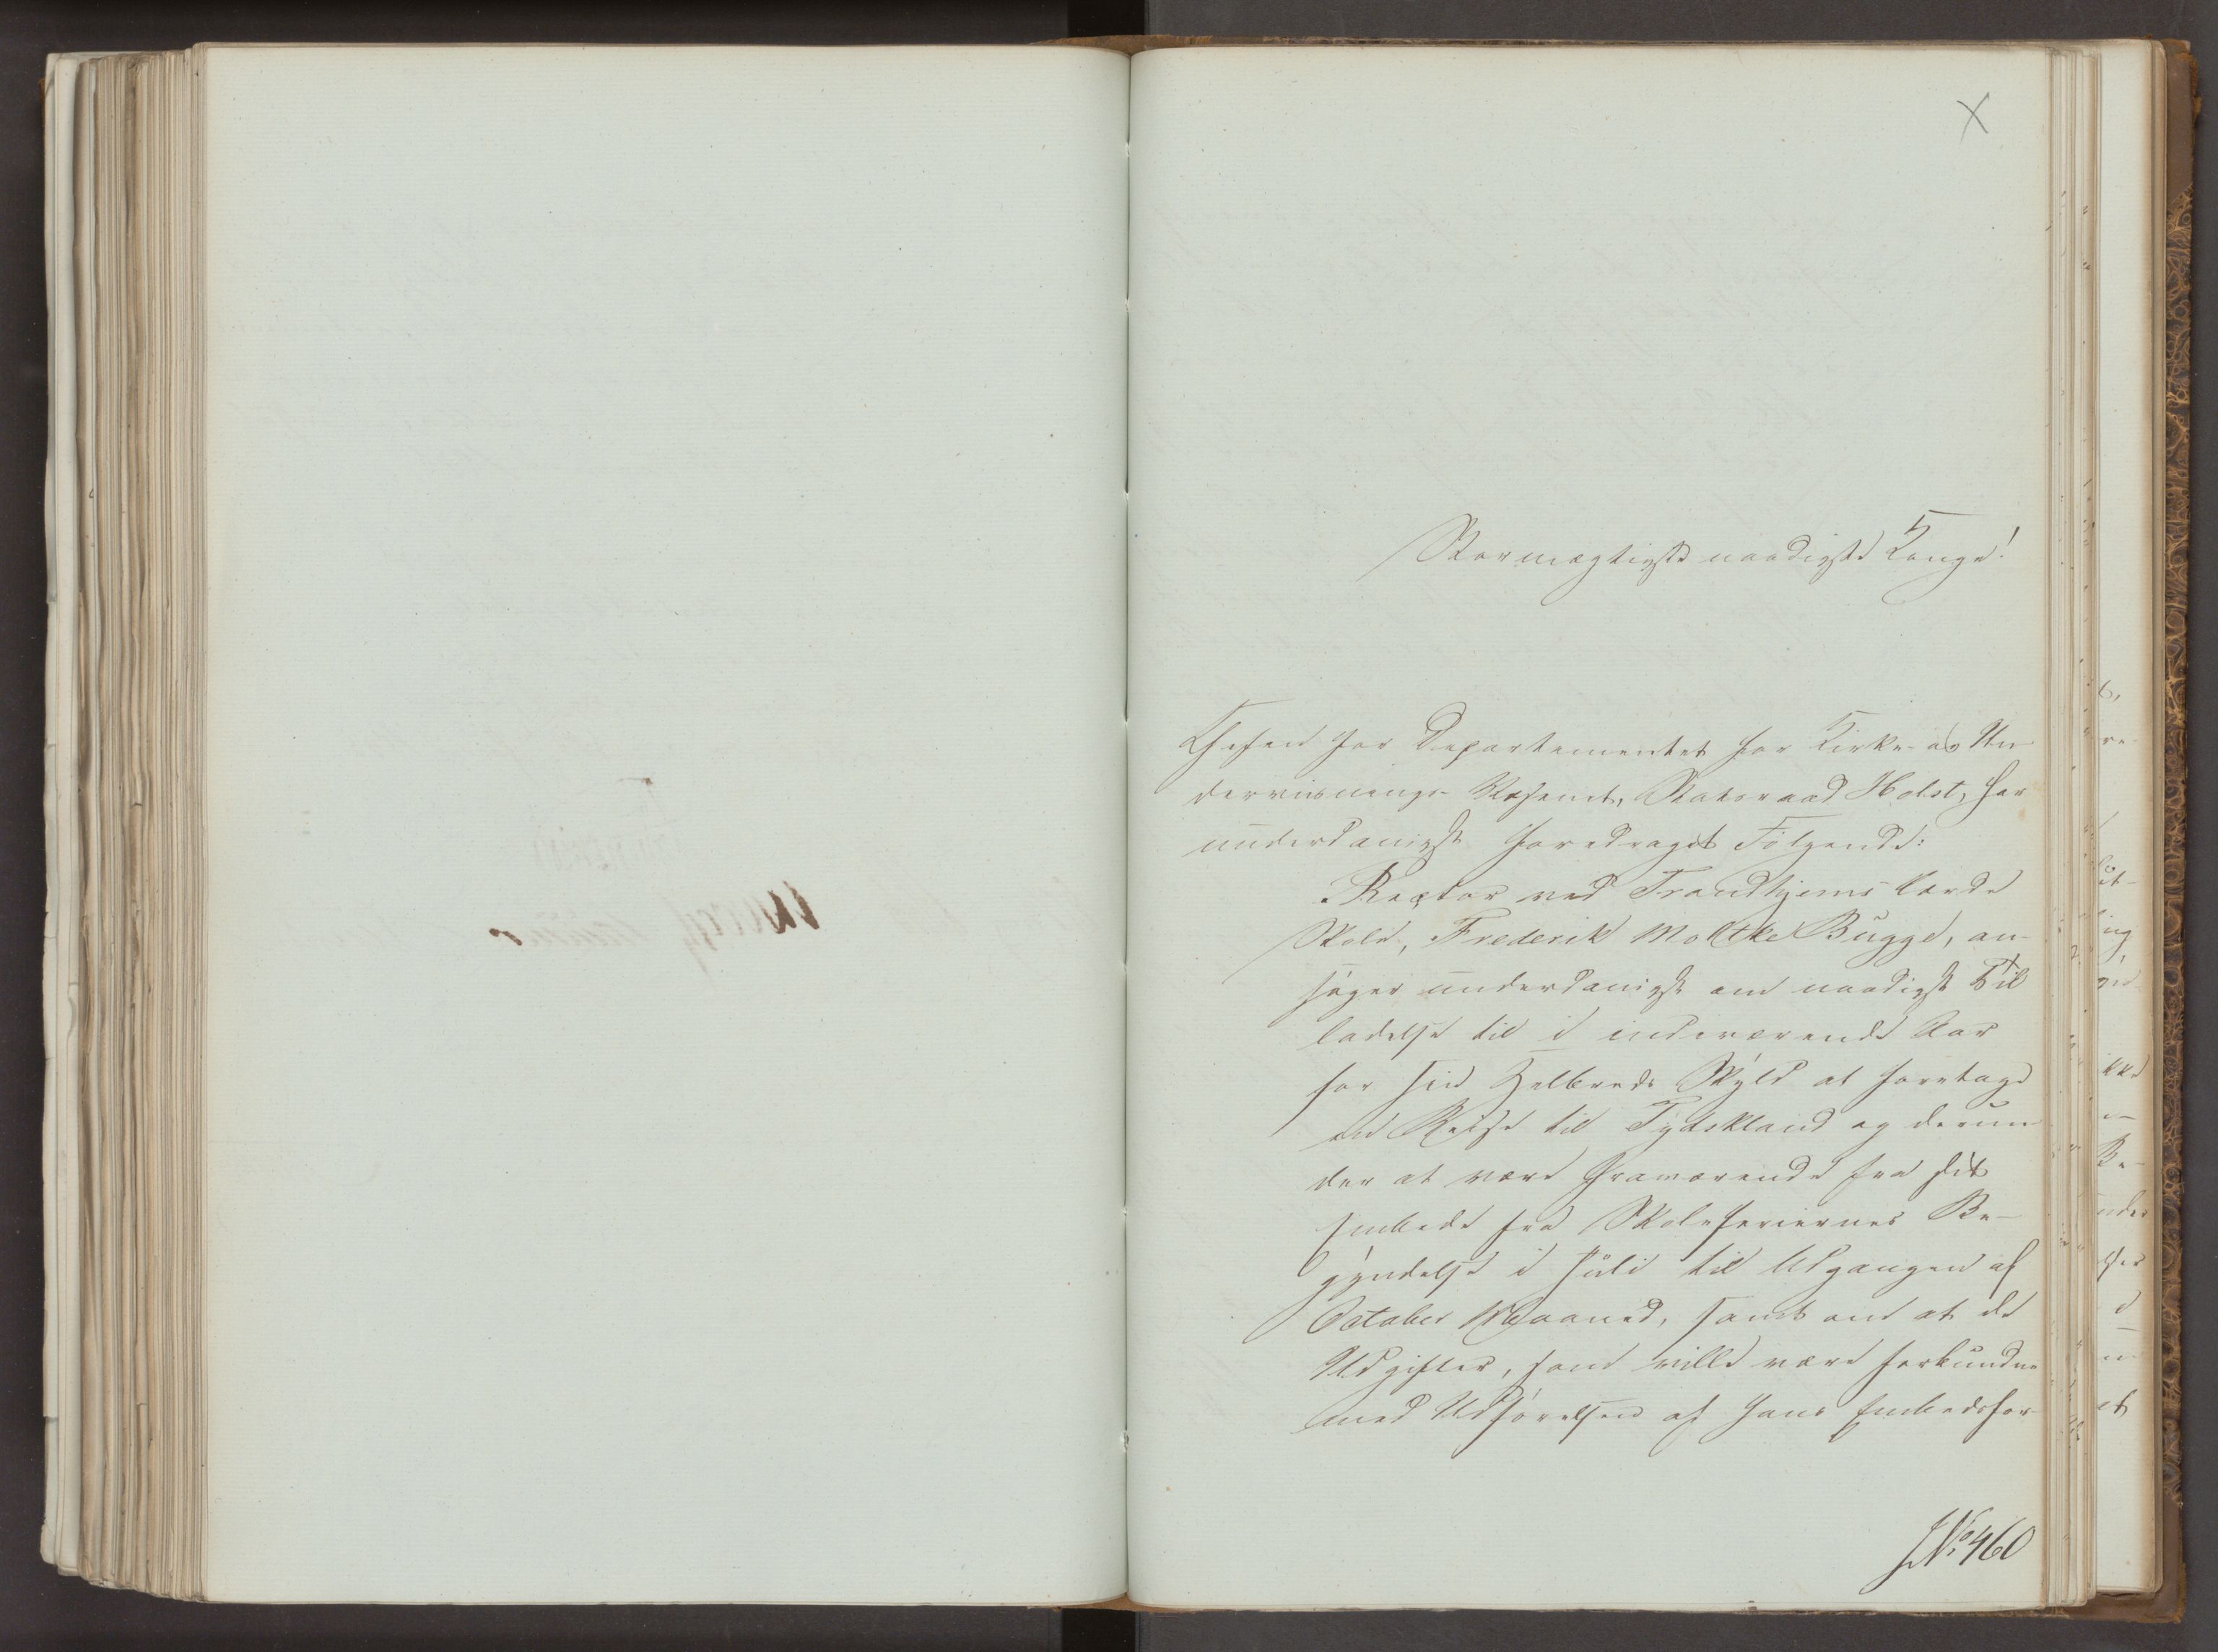 X
Stormægtigste naadigste Konge!
Chefen for Departementet for Kirke- og Un-
dervisnings-Væsenet, Statsraad Holst, har
underdanigst foredraget Følgende:
Rector ved Trondhjems lærde
Skole, Frederik Moltke Bugge, an-
søger underdanigst om naadigst Til
ladelse til i indeværende Aar
for sin Helbreds Skyld at foretage
en Reise til Tydskland og derun
der at være fraværende fra sit
Embede fra Skoleferiernes Be-
gyndelse i Juli til Udgangen af
October Maaned, samt om at de
Udgifter, som ville være forbundne
med Udførelsen af hans Embedsfor-
J.No. 460